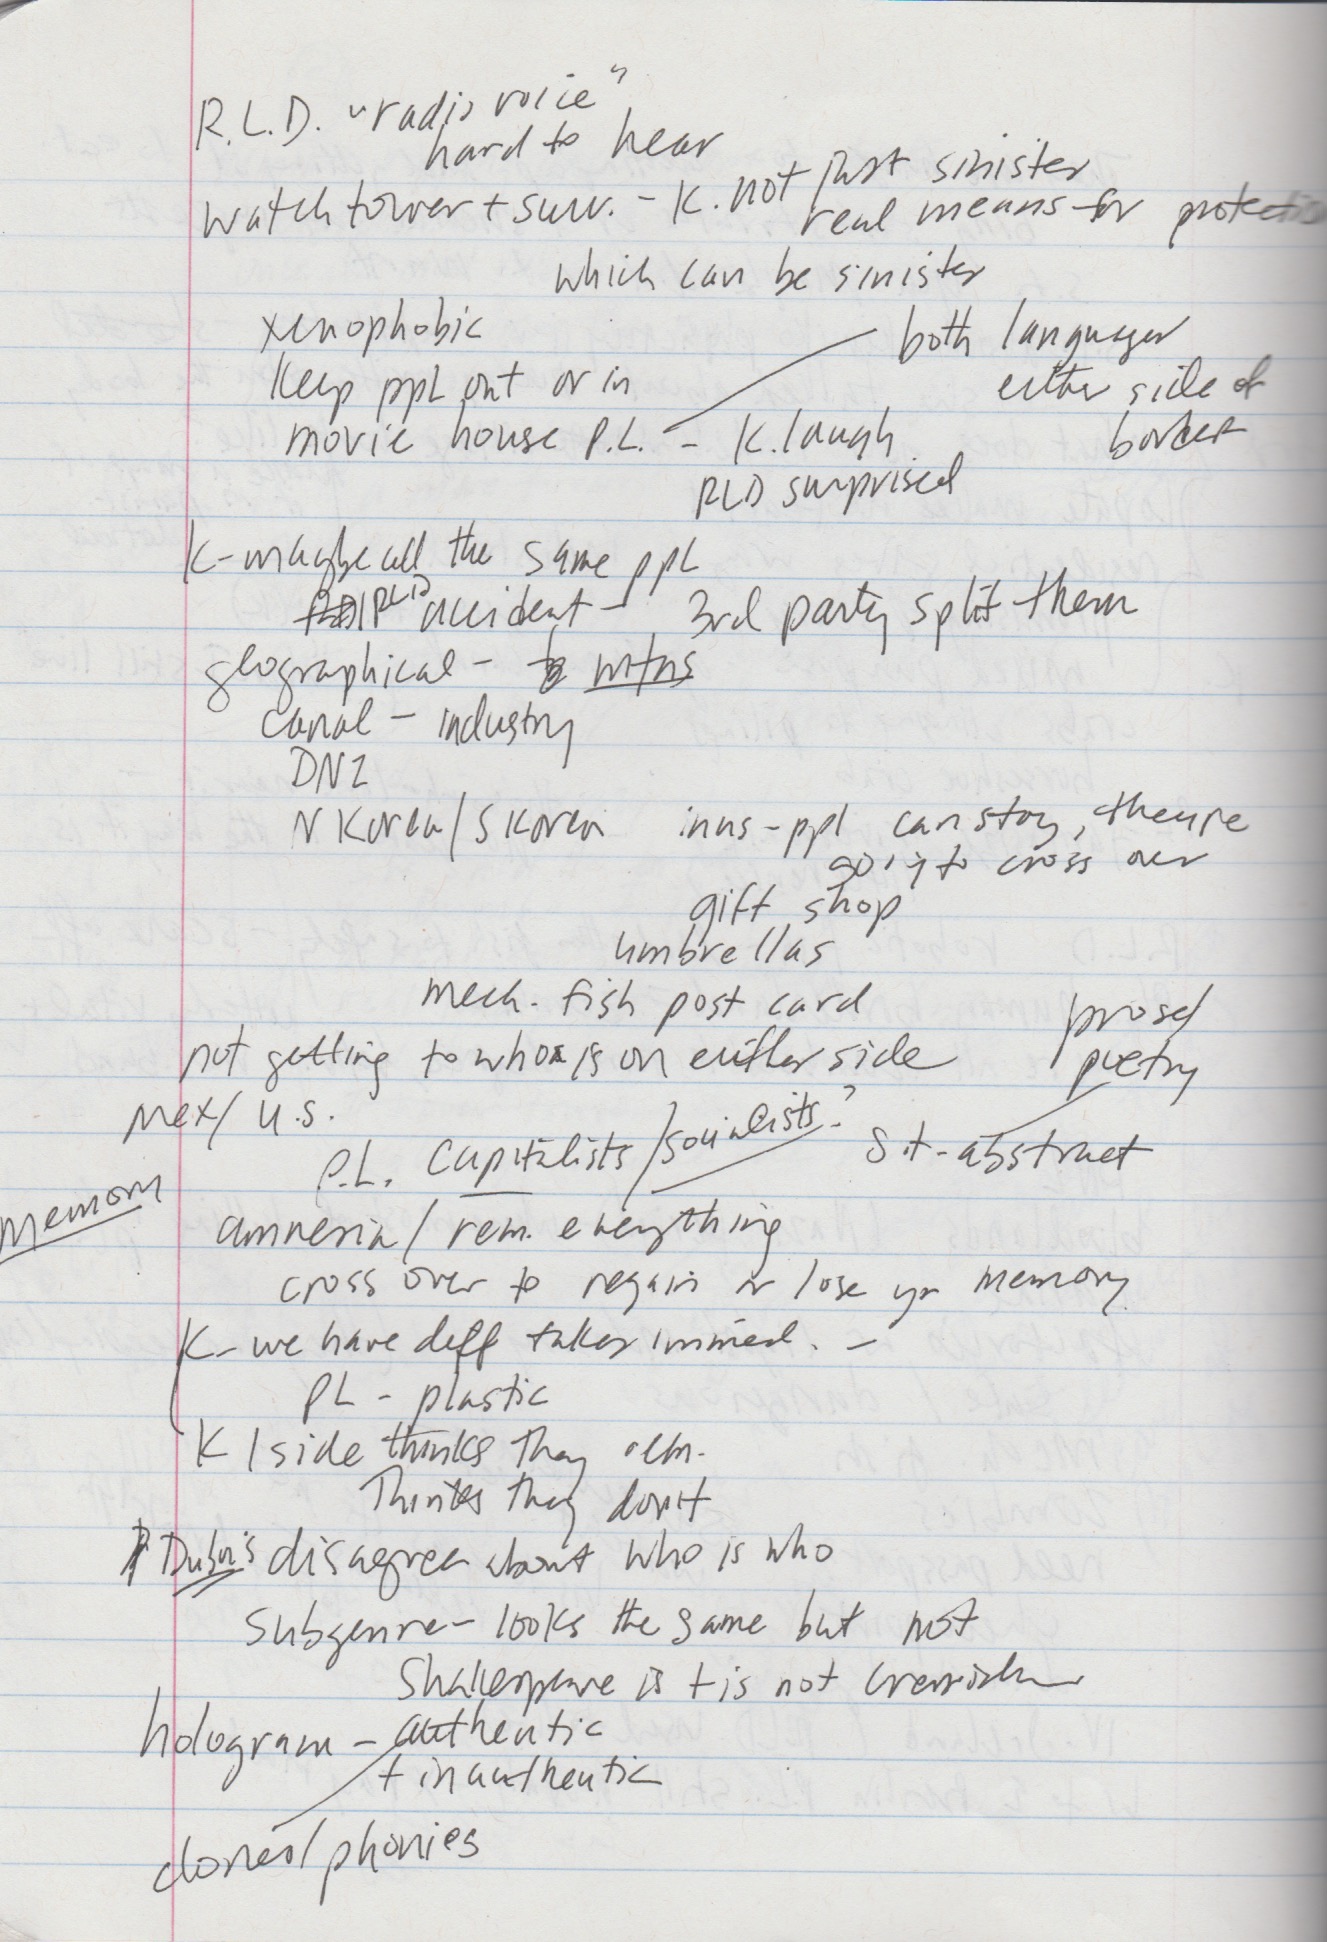 R.L.D. "radio voice"
hard to hear
watch tower + surv. - K. not just sinister
real means for protection
which can be sinister
xenophobic
keep ppl out or in
both languages
either side of
border
movie house P.L. - K. laugh
RLD surprised
K - maybe all the same ppl
RLD accident - 3rd party split them
geographical - mtns
canal - industry
DNZ
N Korea / S Korea
inns - ppl can stay, they're
going to cross over
gift shop
umbrellas
mech. fish post card
not getting to who is on either side
prose/
poetry
Mex/ U.S.
P.L. Capitalists /socialists?
abstract
Memory
amnesia / rem. everything
cross over to regain or lose yr memory
K - we have diff takes immed. -
PL - plastic
K 1 side thinks they rem.
Thinks they don't
disagree about who is who
Subgenre - looks the same but not
Shakespeare is + is not
hologram - authentic
+ inauthentic
clones / phonies